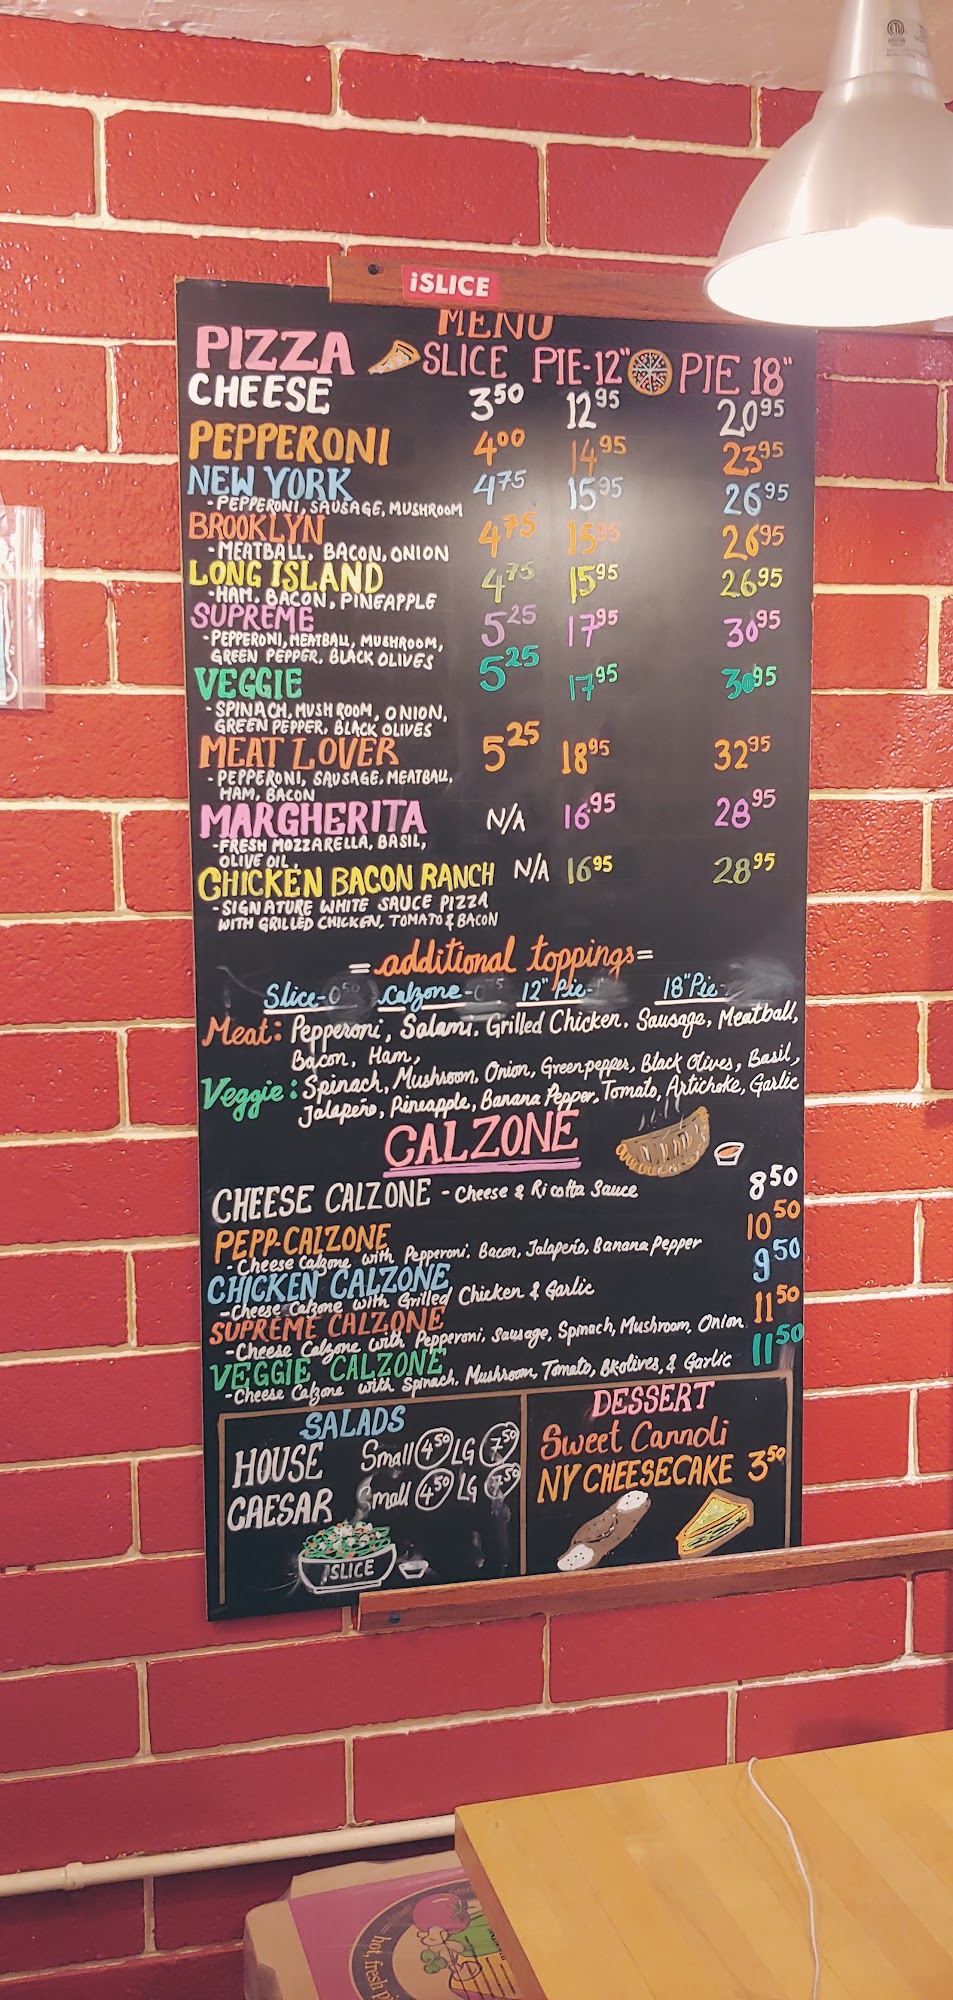 iSLICE
MENU
PIZZA SLICE PIE-12" PIE 18"
CHEESE 3.50 12.95 20.95
PEPPERONI 4.00 14.95 23.95
NEW YORK 4.75 15.95 26.95
- PEPPERONI, SAUSAGE, MUSHROOM
BROOKLYN 4.75 15.95 26.95
- MEATBALL, BACON, ONION
LONG ISLAND 4.75 15.95 26.95
- HAM, BACON, PINEAPPLE
SUPREME 5.25 17.95 30.95
- PEPPERONI, MEATBALL, MUSHROOM,
GREEN PEPPER, BLACK OLIVES
VEGGIE 5.25 17.95 30.95
- SPINACH, MUSHROOM, ONION,
GREEN PEPPER, BLACK OLIVES
MEAT LOVER 5.25 18.95 32.95
- PEPPERONI, SAUSAGE, MEATBALL,
HAM, BACON
MARGHERITA N/A 16.95 28.95
- FRESH MOZZARELLA, BASIL,
OLIVE OIL,
CHICKEN BACON RANCH N/A 16.95 28.95
- SIGNATURE WHITE SAUCE PIZZA
WITH GRILLED CHICKEN, TOMATO & BACON
= additional toppings =
Slice- Calzone- 12" Pie- 18" Pie-
Meat: Pepperoni, Salami, Grilled Chicken, Sausage, Meatball,
Bacon, Ham,
Veggie: Spinach, Mushroom, Onion, Green pepper, Black Olives, Basil,
Jalapeño, Pineapple, Banana Pepper, Tomato, Artichoke, Garlic
CALZONE
CHEESE CALZONE - Cheese & Ricotta Sauce 8.50
PEPP-CALZONE 10.50
- Cheese Calzone with Pepperoni, Bacon, Jalapeño, Banana Pepper
CHICKEN CALZONE 9.50
- Cheese Calzone with Grilled Chicken & Garlic
SUPREME CALZONE 11.50
- Cheese Calzone with Pepperoni, Sausage, Spinach, Mushroom, Onion
VEGGIE CALZONE 11.50
- Cheese Calzone with Spinach, Mushroom, Tomato, Bkolives, & Garlic
SALADS
HOUSE Small 4.50 LG 7.50
CAESAR Small 4.50 LG 7.50
iSLICE
DESSERT
Sweet Cannoli
NY CHEESECAKE 3.50
hot, fresh